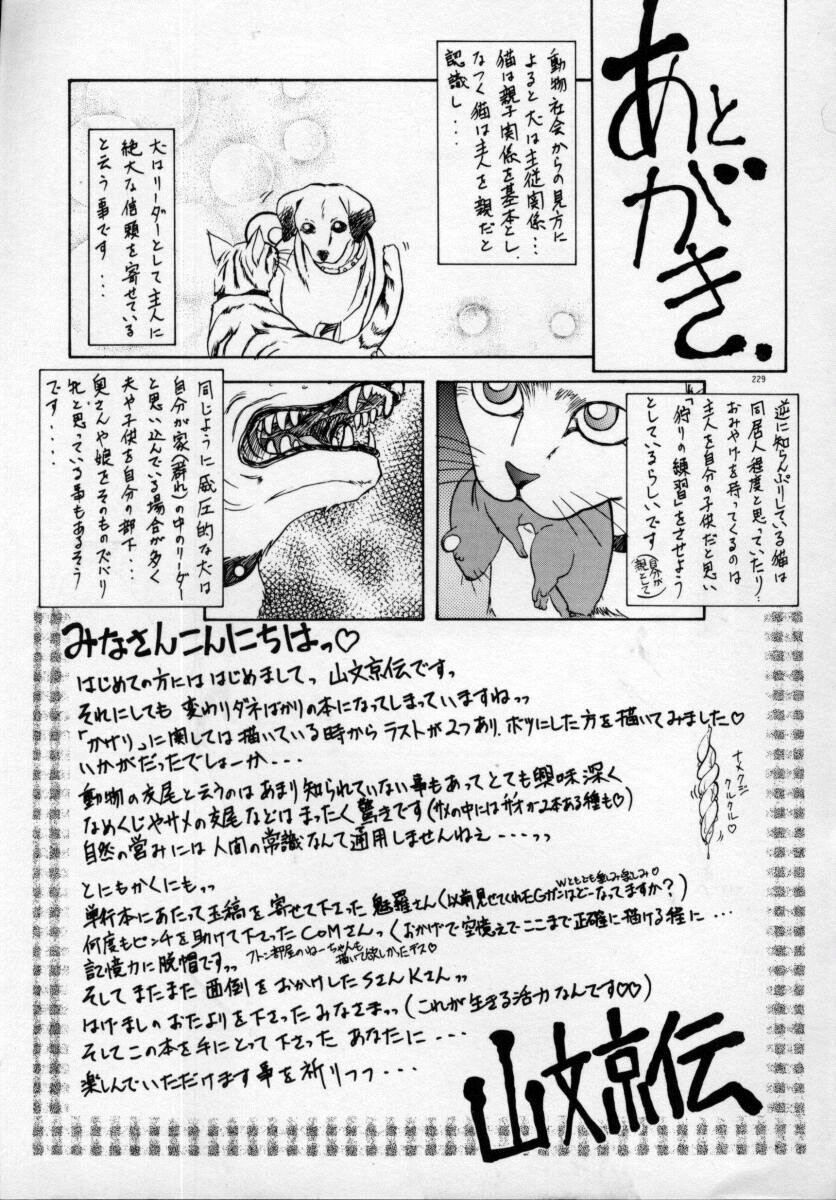 あとがき.
動物社会からの見方に
よると犬は主従関係…
猫は親子関係を基本とし、
なつく猫は主人を親だと
認識し...
犬はリーダーとして主人に
絶大な信頼を寄せている
と云う事です...
229
逆に知らんぷりしている猫は
同居人程度と思っていたり…
おみやげを持ってくるのは
主人を自分の子供だと思い
「狩りの練習」をさせよう
としているらしいです
(自分が
親として)
同じように威圧的な犬は
自分が家(群れ)の中のリーダー
と思い込んでいる場合が多く
夫や子供を自分の部下...
奥さんや娘をそのものズバリ
牝と思っている事もあるそう
です....
みなさんこんにちはっ♡
はじめての方には はじめましてっ 山文京伝ですっ
それにしても 変わりダネばかりの本になってしまっていますねっっ
「かげり」に関しては描いている時から ラストが2つあり、ボツにした方を描いてみました♡
いかがだったでしょーか---
動物の交尾と云うのは あまり知られていない事もあって とても興味深く
なめくじやサメの交尾などは まったく驚きです(サメの中には が2本ある種も♡)
自然の営みには 人間の常識なんて通用しませんねぇ ----っっ
ナメクジ
クルクル♡
とにもかくにもっっ
単行本にあたって玉稿を寄せて下さった 魅羅さん(以前見せてくれたEGガンはどーなってますか?)
Wともども楽しみ楽しみ♡
何度もピンチを助けて下さった COMさんっ(おかげで空憶えでここまで正確に描ける程に...
記憶力に脱帽ですっっ
フトン部屋のねーちゃんも
描いて欲しかったデス♡
そして またまた 面倒を おかけした Sさん Kさんっっ
はげましの おたよりを 下さった みなさまっっ(これが生きる活力なんです♡♡)
そして この本を 手にとって 下さった あなたに ---
楽しんでいただけます事を祈りつつ ...
山文京伝